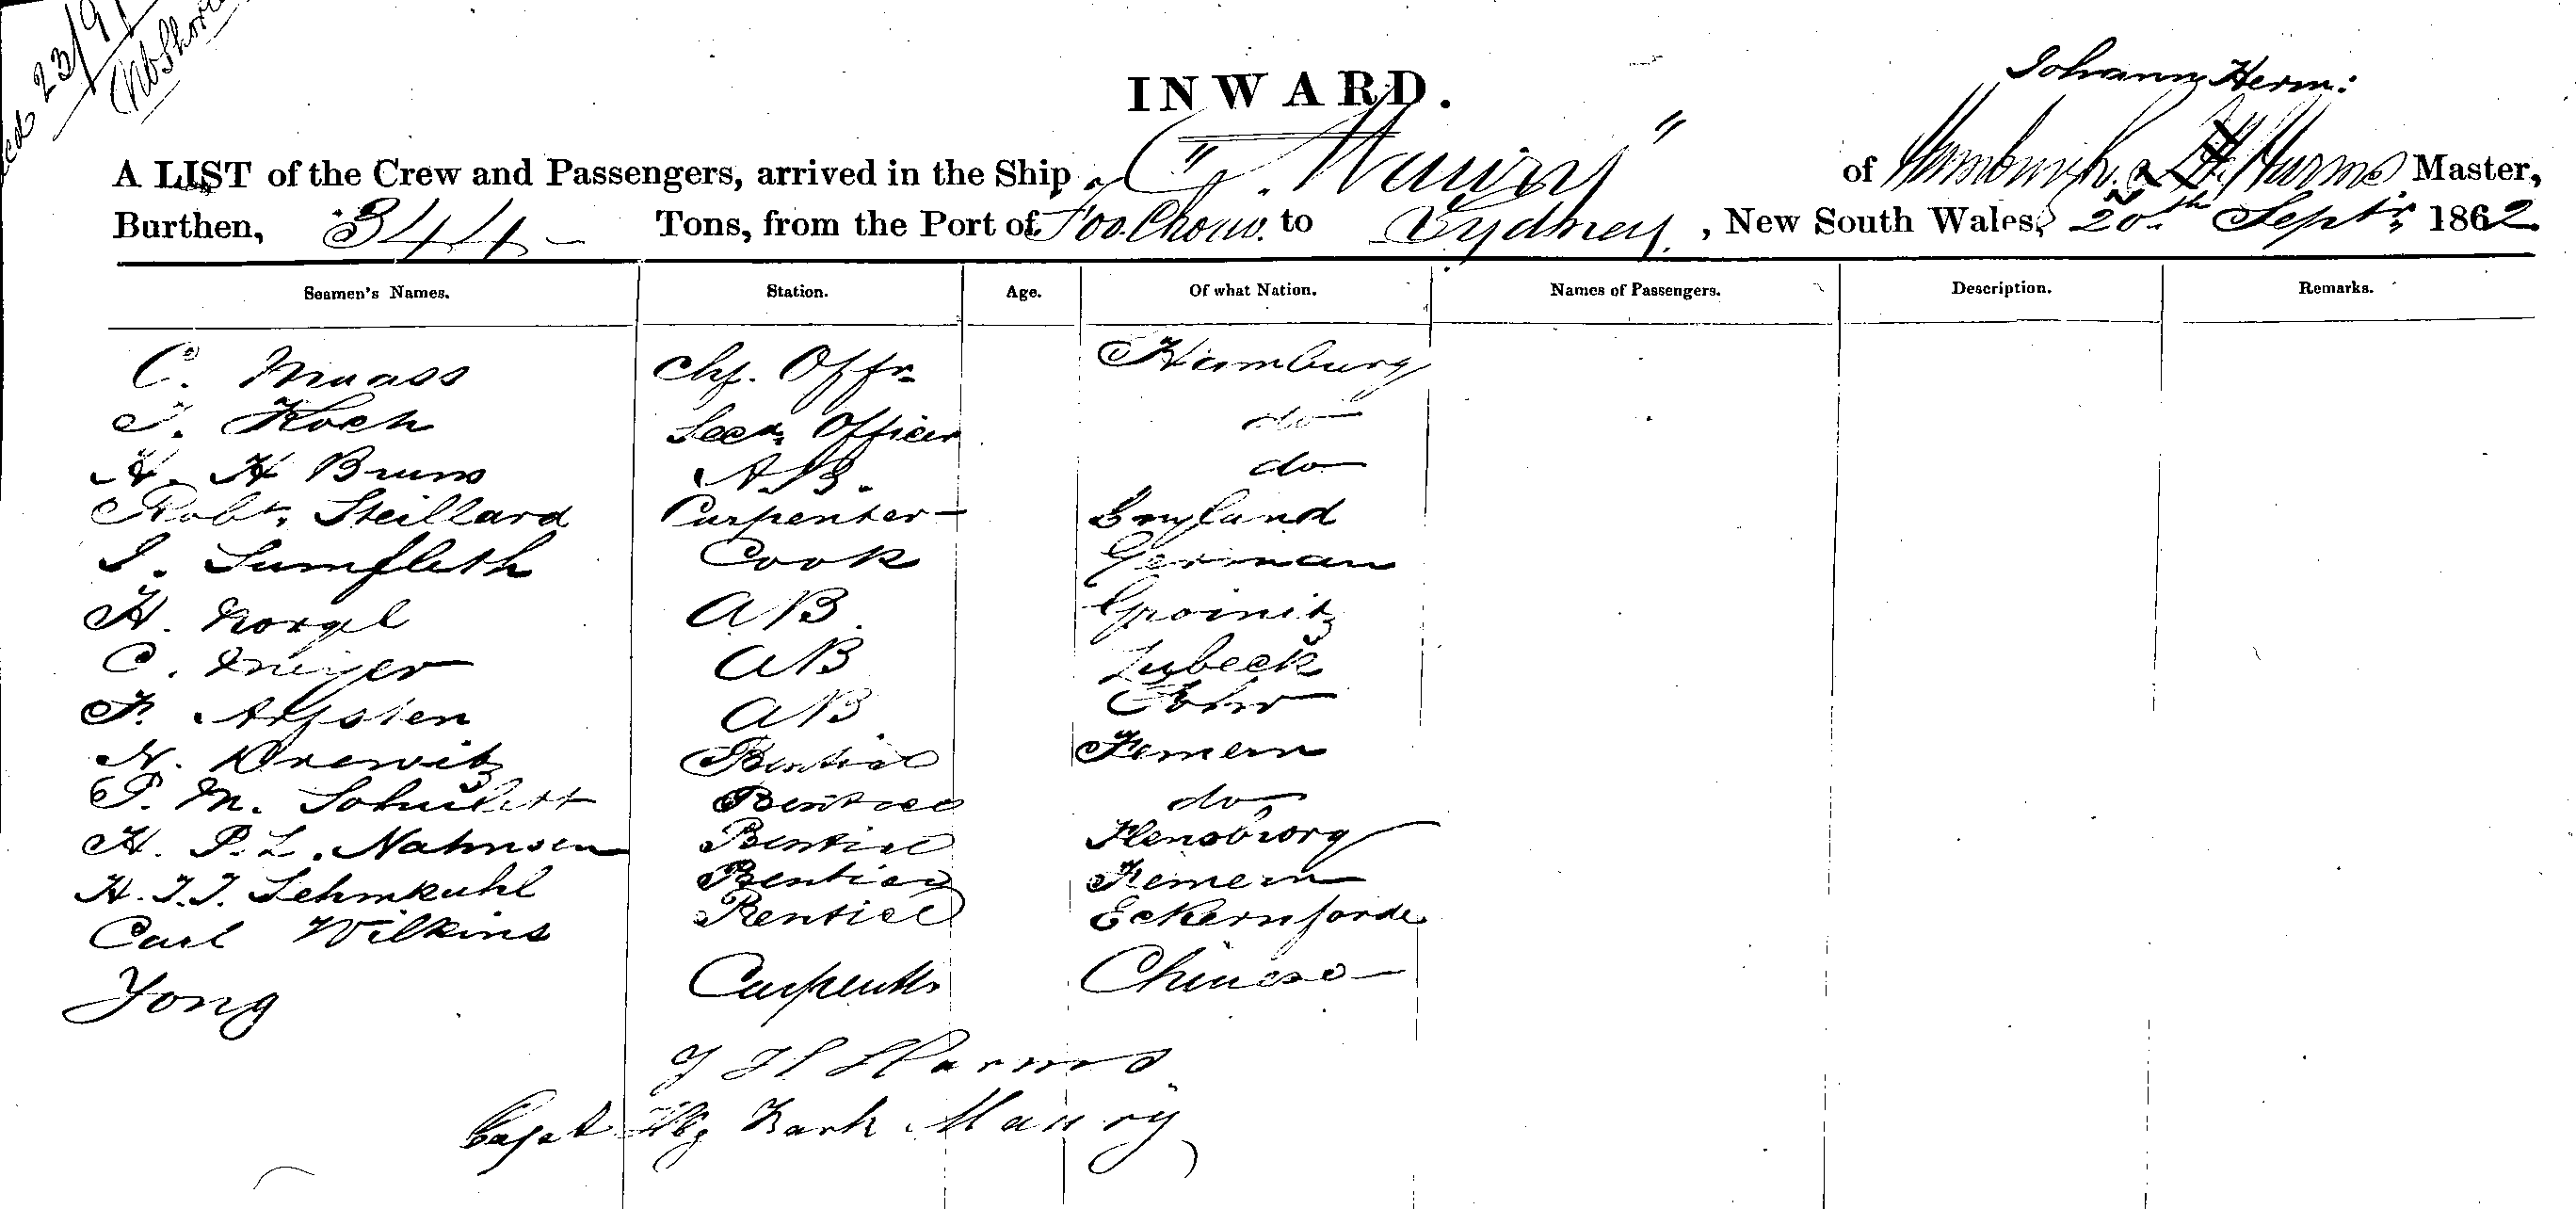 23/9/
INWARD.
Johann Herm:
A LIST of the Crew and Passengers, arrived in the Ship "C. Maury" of Hamburgh Harms Master,
Burthen, 344 Tons, from the Port of Foo Chow to Sydney, New South Wales, 20th Septr 1862
Seamen's Names. Station. Age. Of what Nation. Names of Passengers. Description. Remarks.
C. Maass Chf. Offr. Hamburg
J. Koch Secd. Officer do
H. H Bruns A.B. do
Robt. Steillard Carpenter England
J. Sumfleth Cook German
H. AB
C. Meyer AB Lubeck
F. AB
N. Drewitz Bentice Femern
P. M. Bentice do
H. P. L. Nahmsen Bentice Flensborg
H. J. J. Lehmkuhl Bentice Femern
Carl Wilkins Bentice Eckernforde
Yong Carpentr Chinese
J H Harms
Capt Hbg Bark Maury